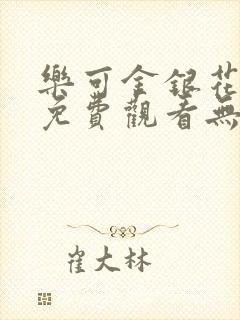 樂可金銀花
免費觀看無
崔大林